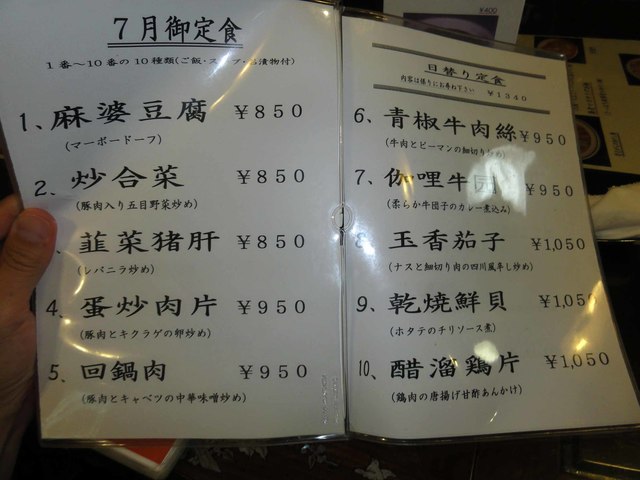 7月御定食
1番～10番の10種類(ご飯・スープ・お漬物付)
1、麻婆豆腐 ¥850
(マーボードーフ)
2、炒合菜 ¥850
(豚肉入り五目野菜炒め)
韮菜猪肝 ¥850
(レバニラ炒め)
4、蛋炒肉片 ¥950
(豚肉とキクラゲの卵炒め)
5、回鍋肉 ¥950
(豚肉とキャベツの中華味噌炒め)
¥400
日替り定食
内容は係りにお尋ね下さい ¥1340
6、青椒牛肉絲 ¥950
(牛肉とピーマンの細切り炒め)
7、伽哩牛 ¥950
(柔らか牛団子のカレー煮込み)
8、玉香茄子 ¥1,050
(ナスと細切り肉の四川風辛し炒め)
9、乾焼鮮貝 ¥1,050
(ホタテのチリソース煮)
10、醋溜鶏片 ¥1,050
(鶏肉の唐揚げ甘酢あんかけ)